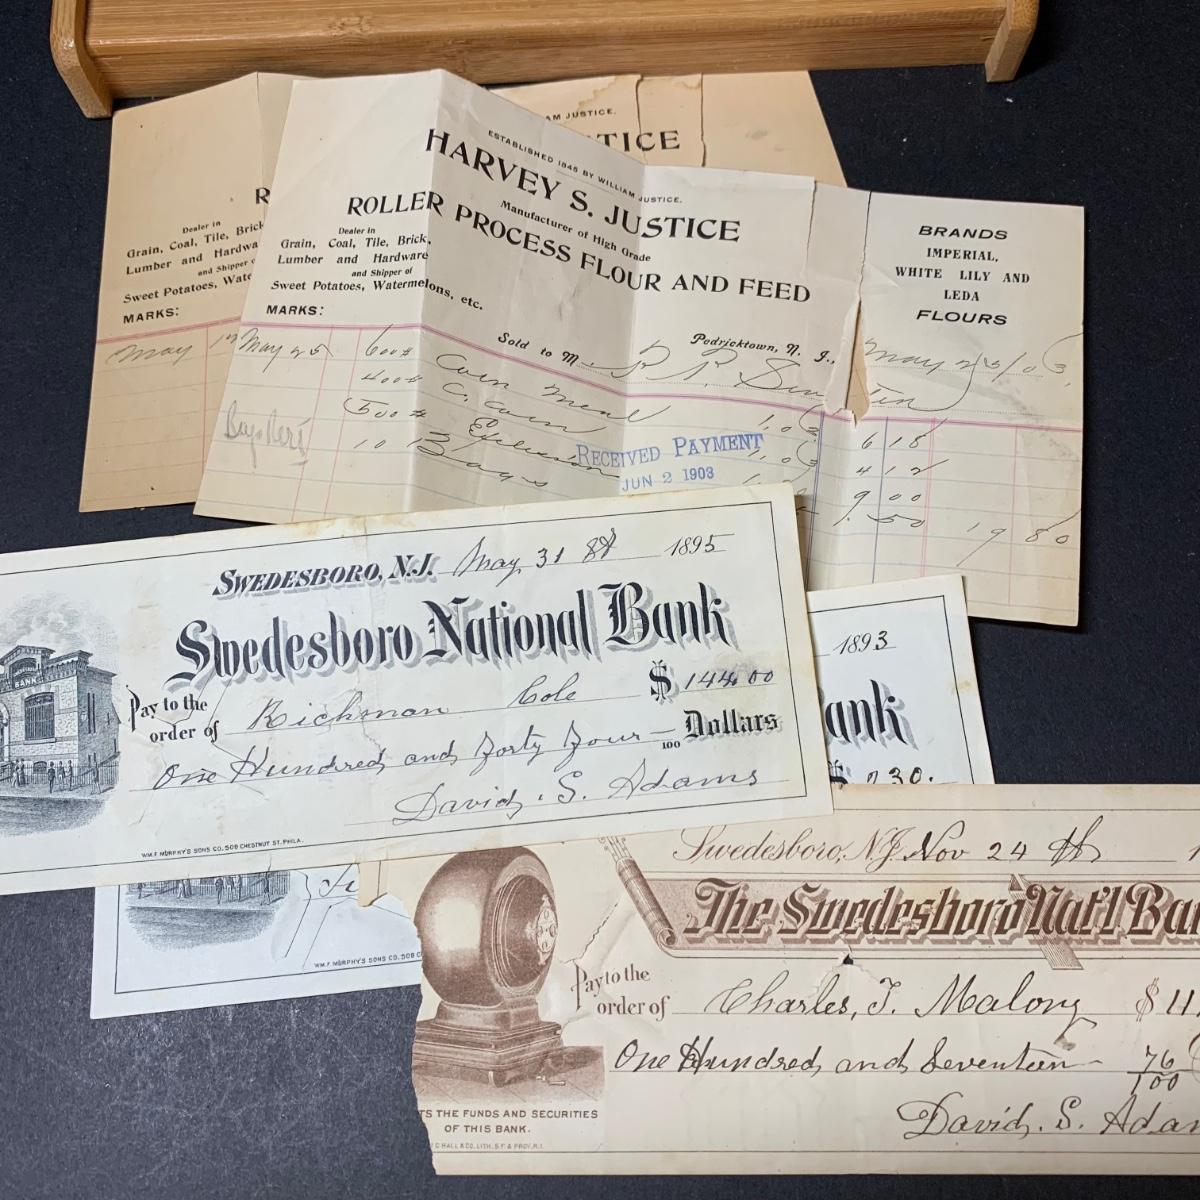 AM JUSTICE.
TICE
R
Dealer in
Grain, Coal, Tile, Brick
Lumber and Hardwa
and Shipper
Sweet Potatoes, Wate
MARKS:
May
ESTABLISHED 1848 BY WILLIAM JUSTICE.
HARVEY S. JUSTICE
Manufacturer of High Grade
ROLLER PROCESS FLOUR AND FEED
Dealer in
Grain, Coal, Tile, Brick,
Lumber and Hardware
and Shipper of
Sweet Potatoes, Watermelons, etc.
MARKS:
BRANDS
IMPERIAL,
WHITE LILY AND
LEDA
FLOURS
Pedricktown, N. J., May 25 / 03,
Sold to M
May 25 600# Corn Meal 1.03 6 18
400# C. Corn 1.03 4 12
500# 9 00
10 Bags 1.50 19 80
RECEIVED PAYMENT
JUN 2 1903
SWEDESBORO, N.J. May 31 st 1895
Swedesboro National Bank
BANK
Pay to the order of Richman Cole $ 144.00
One Hundred and Forty Four — 100 Dollars
David. S. Adams
WM.F. MURPHY'S SONS CO. 509 CHESTNUT ST. PHILA.
1893
ank
$ 230.
WM.F. MURPHY'S SONS CO. 509 C
Swedesboro, N.J. Nov 24 th 1
The Swedesboro Nat'l Ban
Pay to the order of Charles, T. Malony $ 11
One Hundred and Seventeen — 76/100
David. S. Adam
TS THE FUNDS AND SECURITIES
OF THIS BANK.
C HALL & CO. LITH. S.F. & PROV. R.I.